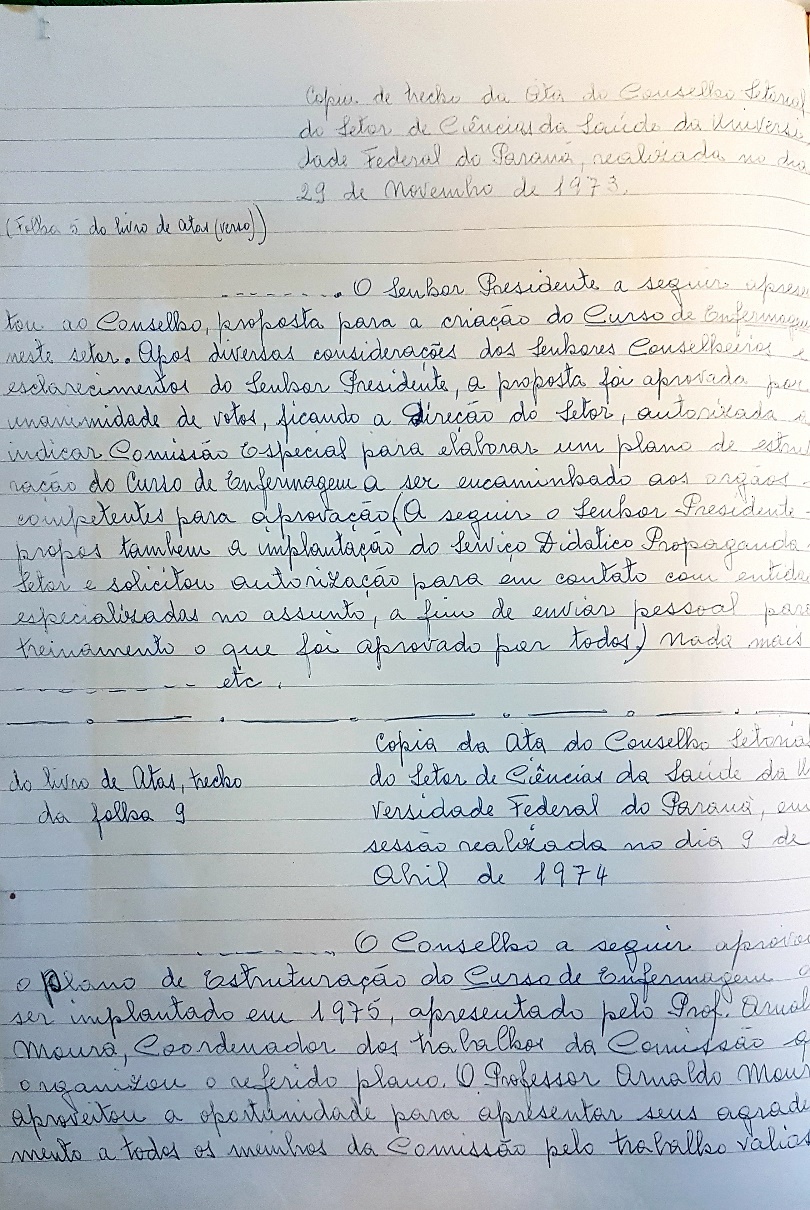 Copia de trecho da Ata do Conselho Setorial
do Setor de Ciências da Saúde da Universi
dade Federal do Paraná, realizada no dia
29 de Novembro de 1973.
(Folha 5 do livro de atas (verso))
- - - - - - - . O Senhor Presidente a seguir apresen
tou ao Conselho, proposta para a criação do Curso de Enfermagem
neste setor. Apos diversas considerações dos Senhores Conselheiros e
esclarecimentos do Senhor Presidente, a proposta foi aprovada por
unanimidade de votos, ficando a Direcão do Setor, autorizada a
indicar Comissão Especial para elaborar um plano de estru
ração do Curso de Enfermagem a ser encaminhado aos orgãos -
competentes para aprovação (A seguir o Senhor Presidente -
propos tambem a implantação do Serviço Didatico Propaganda
Setor e solicitou autorização para em contato com entida
especializadas no assunto, a fim de enviar pessoal para
treinamento o que foi aprovado por todos) Nada mais
- - - - - - - - - - etc.
Copia da Ata do Conselho Setorial
do livro de Atas, trecho
da folha 9
do Setor de Ciências da Saúde da U
versidade Federal do Paraná, em
sessão realizada no dia 9 de
Abril de 1974
- - - - - - - . O Conselho a seguir aprovou
o plano de Estruturação do Curso de Enfermagem a
ser implantado em 1975, apresentado pelo Prof. Arnal
Moura, Coordenador dos trabalhos da Comissão q
organizou o referido plano. O Professor Arnaldo Mour
aproveitou a oportunidade para apresentar seus agrade
mento a todos os membros da Comissão pelo trabalho valios